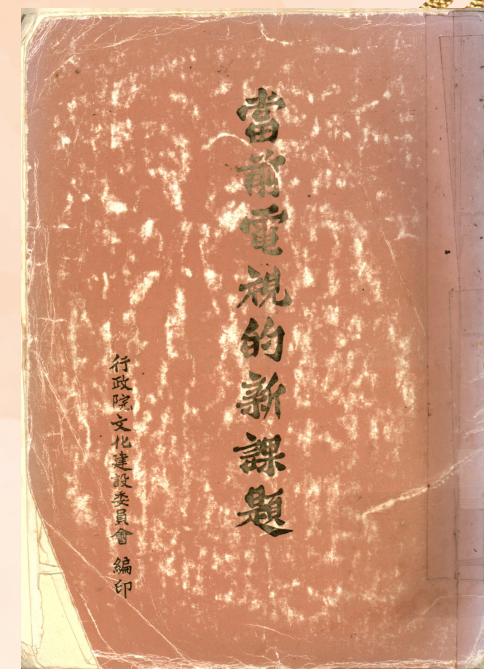 當前電視的新課題
行政院文化建設委員會 編印